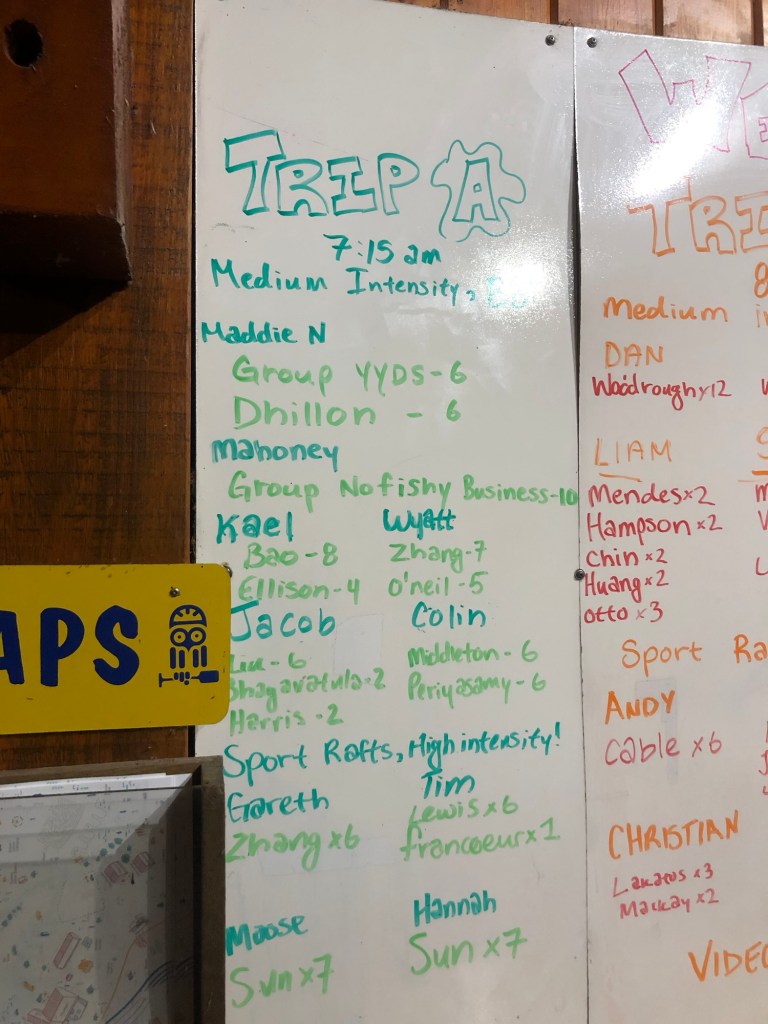 TRIP A
7:15 am
Medium Intensity,
Maddie N
Group YYDS - 6
Dhillon - 6
Mahoney
Group Nofishy Business - 10
Kael Wyatt
Bao - 8 Zhang - 7
Ellison - 4 O'neil - 5
Jacob Colin
Liu - 6 Middleton - 6
Bhagavatula - 2 Periyasamy - 6
Harris - 2
Sport Rafts, High intensity!
Gareth Tim
Zhang x6 Lewis x6
francoeur x1
Moose Hannah
Sun x7 Sun x7
APS
TRI
8
Medium
DAN
Woodrough x12
LIAM
Mendes x2
Hampson x2
Chin x2
Huang x2
Otto x3
Sport Ra
ANDY
Cable x6
CHRISTIAN
Lakatos x3
Mackay x2
VIDEO